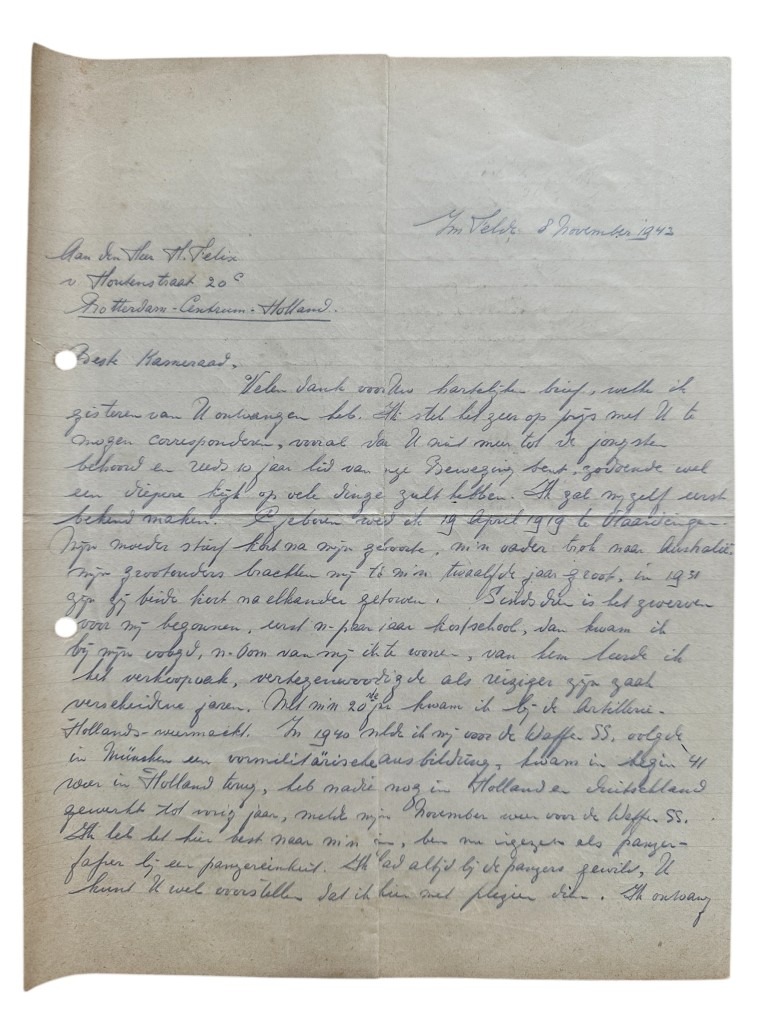 Im Felde, 8 November 1943
Aan den Heer H. Felix
v. Houtenstraat 20c
Rotterdam-Centrum-Holland.
Beste Kameraad,
Velen dank voor Uw hartelijken brief, welke ik
gisteren van U ontvangen heb. Ik stel het zeer op prijs met U te
mogen corresponderen, vooral daar U niet meer tot de jongsten
behoord en reeds 10 jaar lid van Beweging bent, zodoende wel
een diepere kijk op vele dinge zult hebben. Ik zal mijzelf eerst
bekend maken. Geboren werd ik 19 April 1919 te Vlaardingen.
Mijn moeder stierf kort na mijn geboorte, m'n vader trok naar Australië,
mijn grootouders brachten mij tot m'n twaalfde jaar groot, in 1931
zijn zij beide kort na elkander gestorven. Sindsdien is het zwerven
voor mij begonnen, eerst 'n paar jaar kostschool, dan kwam ik
bij mijn voogd, 'n Oom van mij te wonen, van hem leerde ik
het verkoopvak, vertegenwoordigde als reiziger zijn zaak
verscheidene jaren. Met m'n 20ste jr kwam ik bij de Artillerie-
Hollands-weermacht. In 1940 melde ik mij voor de Waffen SS, volgde
in München een vormilitärische ausbildung, kwam in begin 41
weer in Holland terug, heb nadien nog in Holland en Duitschland
gewerkt tot vorig jaar, melde mijn November weer voor de Waffen SS.
Ik heb het hier best naar m'n zin, ben nu ingezet als panzer-
fahrer bij een panzereinheit. Ik had altijd bij de panzers gewild, U
kunt U wel voorstellen dat ik hier met plezier dien. Ik ontvang